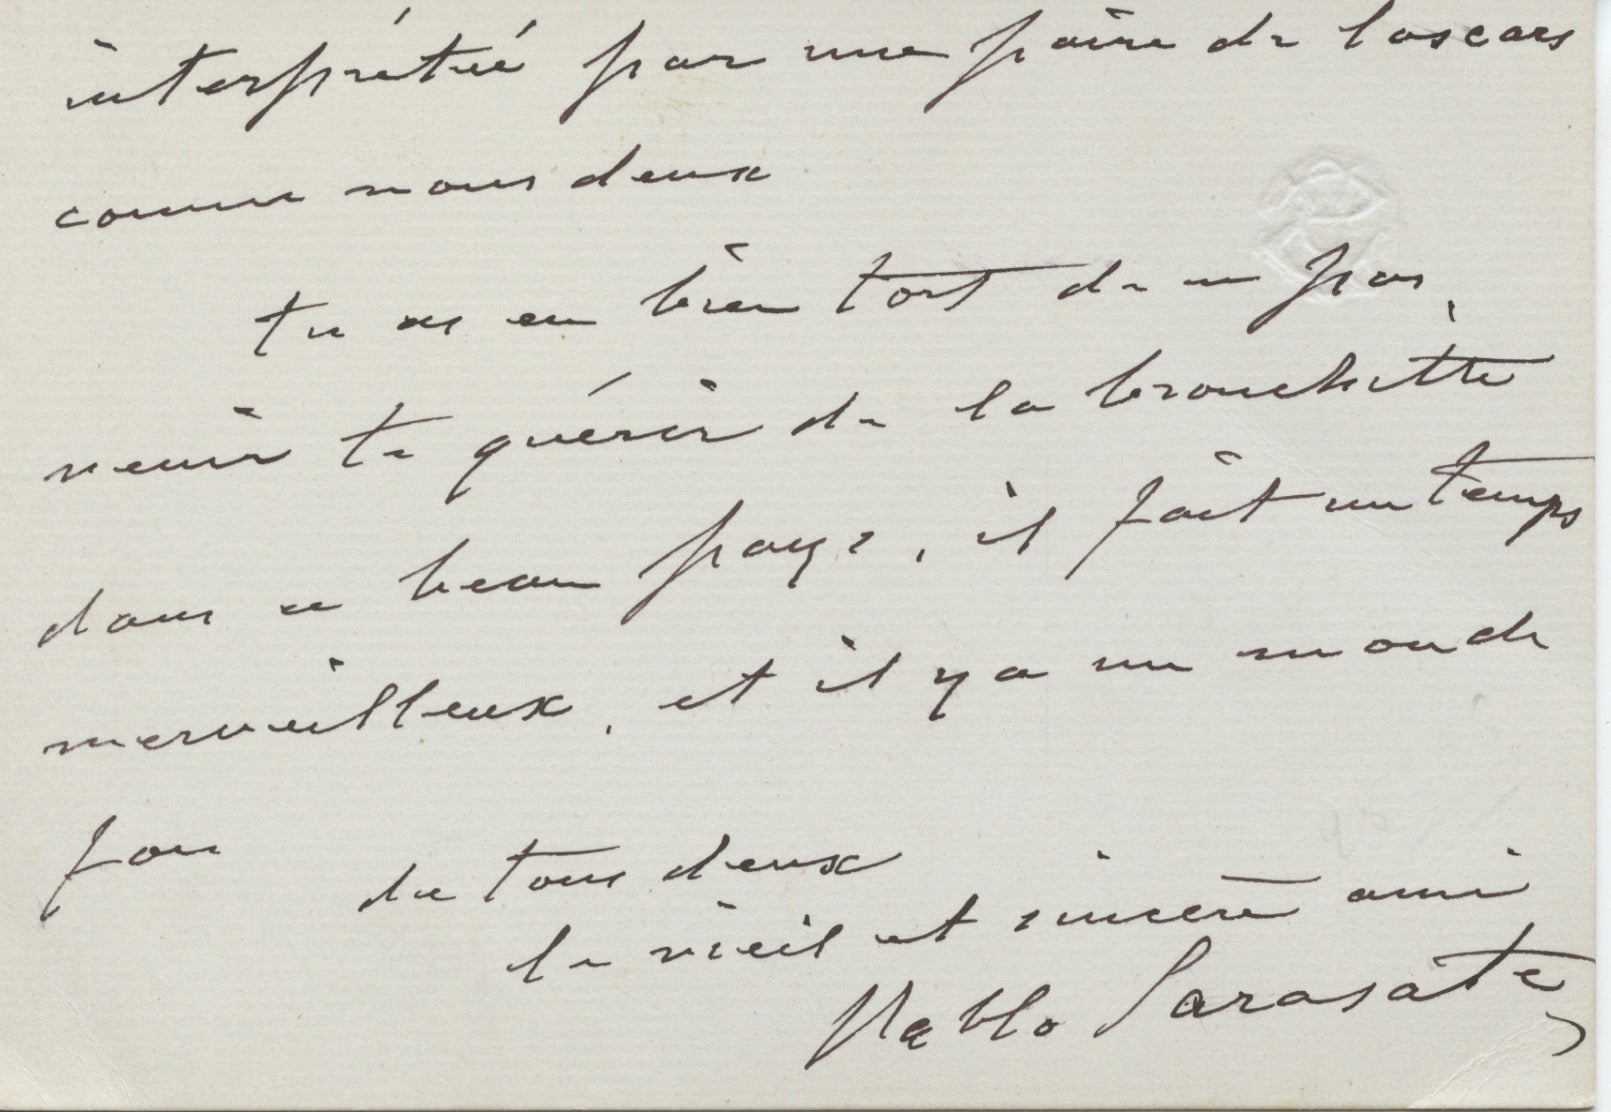 interprétée par une paire de lascars
comme nous deux
tu as eu bien tort de ne pas
venir te guérir de la brouchitte
dans ce beau pays, il fait un temps
merveilleux, et il y a un monde
fou
de tous deux
le vieil et sincère ami
Pablo Sarasate